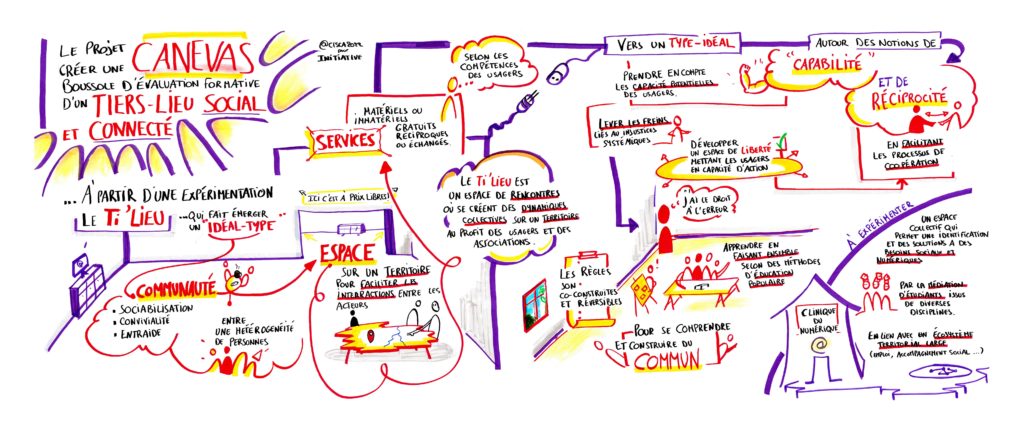 LE PROJET CANEVAS
CRÉER UNE
BOUSSOLE D'ÉVALUATION FORMATIVE
D'UN TIERS-LIEU SOCIAL
ET CONNECTÉ
@CISCA2022
POUR
INITIATIVE
SELON LES
COMPÉTENCES
DES USAGERS
MATÉRIELS OU
IMMATÉRIELS
GRATUITS
RÉCIPROQUES
OU ÉCHANGÉS
SERVICES
... À PARTIR D'UNE EXPÉRIMENTATION
LE TI'LIEU
...QUI FAIT ÉMERGER
UN "IDÉAL-TYPE"
"ICI C'EST À PRIX LIBRES!"
COMMUNAUTÉ
• SOCIABILISATION
• CONVIVIALITÉ
• ENTRAIDE
ENTRE
UNE HÉTÉROGÉNÉITÉ
DE PERSONNES
ESPACE
SUR UN TERRITOIRE
POUR FACILITER LES
INTERACTIONS ENTRE LES
ACTEURS
LE TI'LIEU EST
UN ESPACE DE RENCONTRES
OÙ SE CRÉENT DES DYNAMIQUES
COLLECTIVES SUR UN TERRITOIRE
AU PROFIT DES USAGERS ET DES
ASSOCIATIONS.
VERS UN TYPE-IDÉAL
PRENDRE EN COMPTE
LES CAPACITÉ POTENTIELLES
DES USAGERS.
LEVER LES FREINS
LIÉS AU INJUSTICES
SYSTÉMIQUES
DÉVELOPPER
UN ESPACE DE LIBERTÉ
METTANT LES USAGERS
EN CAPACITÉ D'ACTION
J'AI LE DROIT
À L'ERREUR?
APPRENDRE EN
FAISANT ENSEMBLE
SELON DES MÉTHODES
D'ÉDUCATION
POPULAIRE
LES RÈGLES
SON
CO-CONSTRUITES
ET RÉVERSIBLES
POUR SE COMPRENDRE
ET CONSTRUIRE DU
COMMUN
AUTOUR DES NOTIONS DE
"CAPABILITÉ"
ET DE
RÉCIPROCITÉ
EN FACILITANT
LES PROCESSUS DE
COOPÉRATION
À EXPÉRIMENTER
UN ESPACE
COLLECTIF QUI
PERMET UNE IDENTIFICATION
ET DES SOLUTIONS À DES
BESOINS SOCIAUX ET
NUMÉRIQUES
PAR LA MÉDIATION
D'ÉTUDIANTS ISSUS
DE DIVERSES
DISCIPLINES.
CLINIQUE
DU
NUMÉRIQUE
@
EN LIEN AVEC EN ÉCOSYSTÈME
TERRITORIAL LARGE
(EMPLOI, ACCOMPAGNEMENT SOCIAL ...)